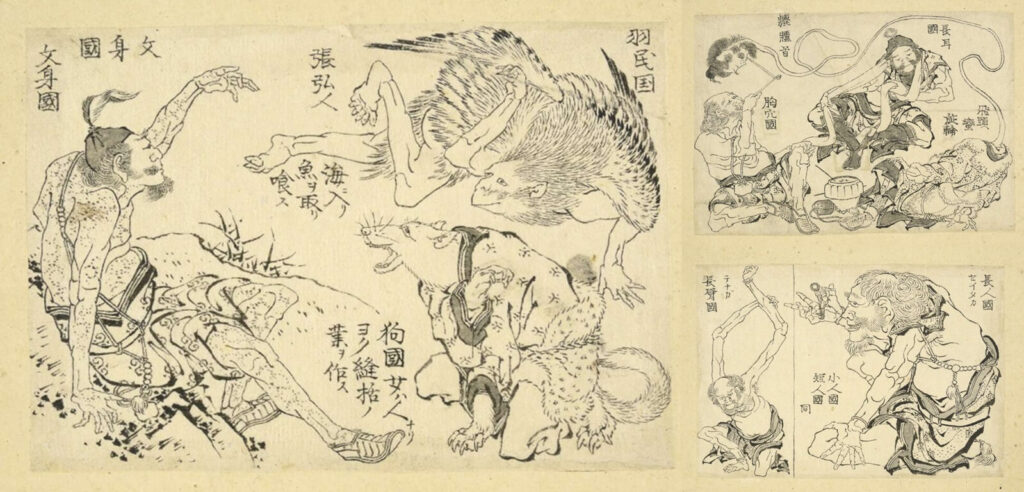 羽民国
張弘人
海ニ入リ
魚ヲ取リ
喰ふ
文身國
文身國
狗國女ハ人ナリ
ヨク縫拾ノ
葉ヲ作ス
長耳
國
轆轤首
胸穴國
飛頭
蠻
長人國
セイタカ
小人國
短人國
同
テナカ
長臂國